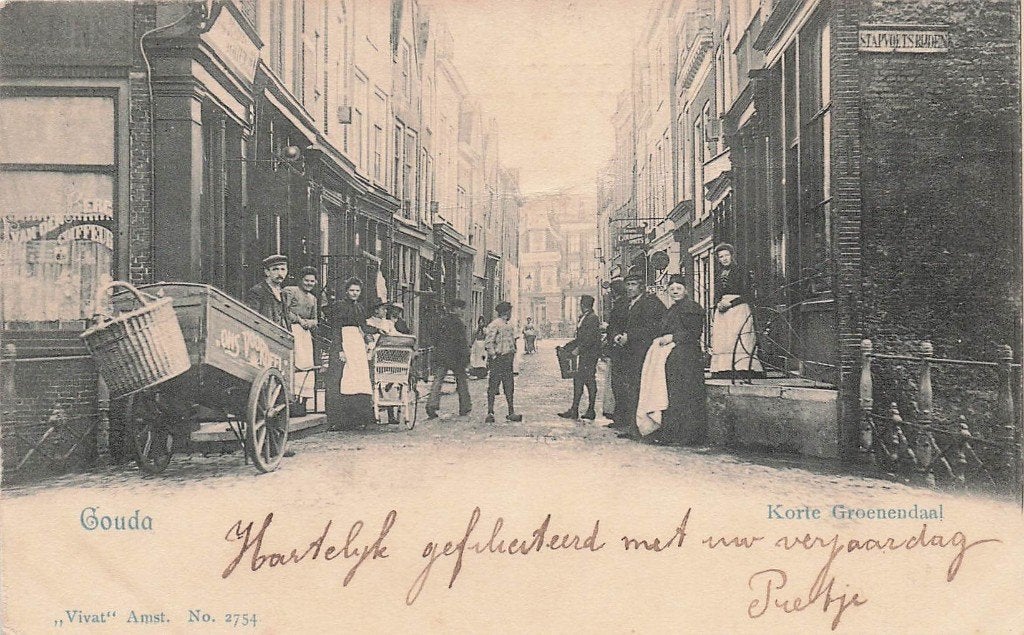 STAPVOETS BRUG
„ONS V
Gouda
Korte Groenendaal
Hartelyk gefeliciteerd met uw verjaardag
Pietje
„Vivat“ Amst. No. 2754